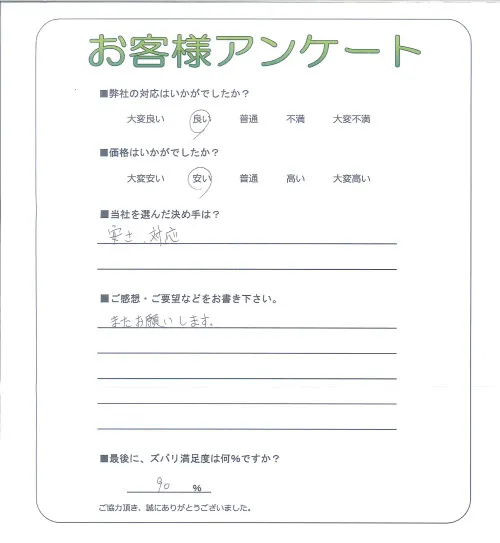 お客様アンケート
■弊社の対応はいかがでしたか？
大変良い 良い 普通 不満 大変不満
■価格はいかがでしたか？
大変安い 安い 普通 高い 大変高い
■当社を選んだ決め手は？
安さ、対応
■ご感想・ご要望などをお書き下さい。
またお願いします。
■最後に、ズバリ満足度は何%ですか？
90 %
ご協力頂き、誠にありがとうございました。